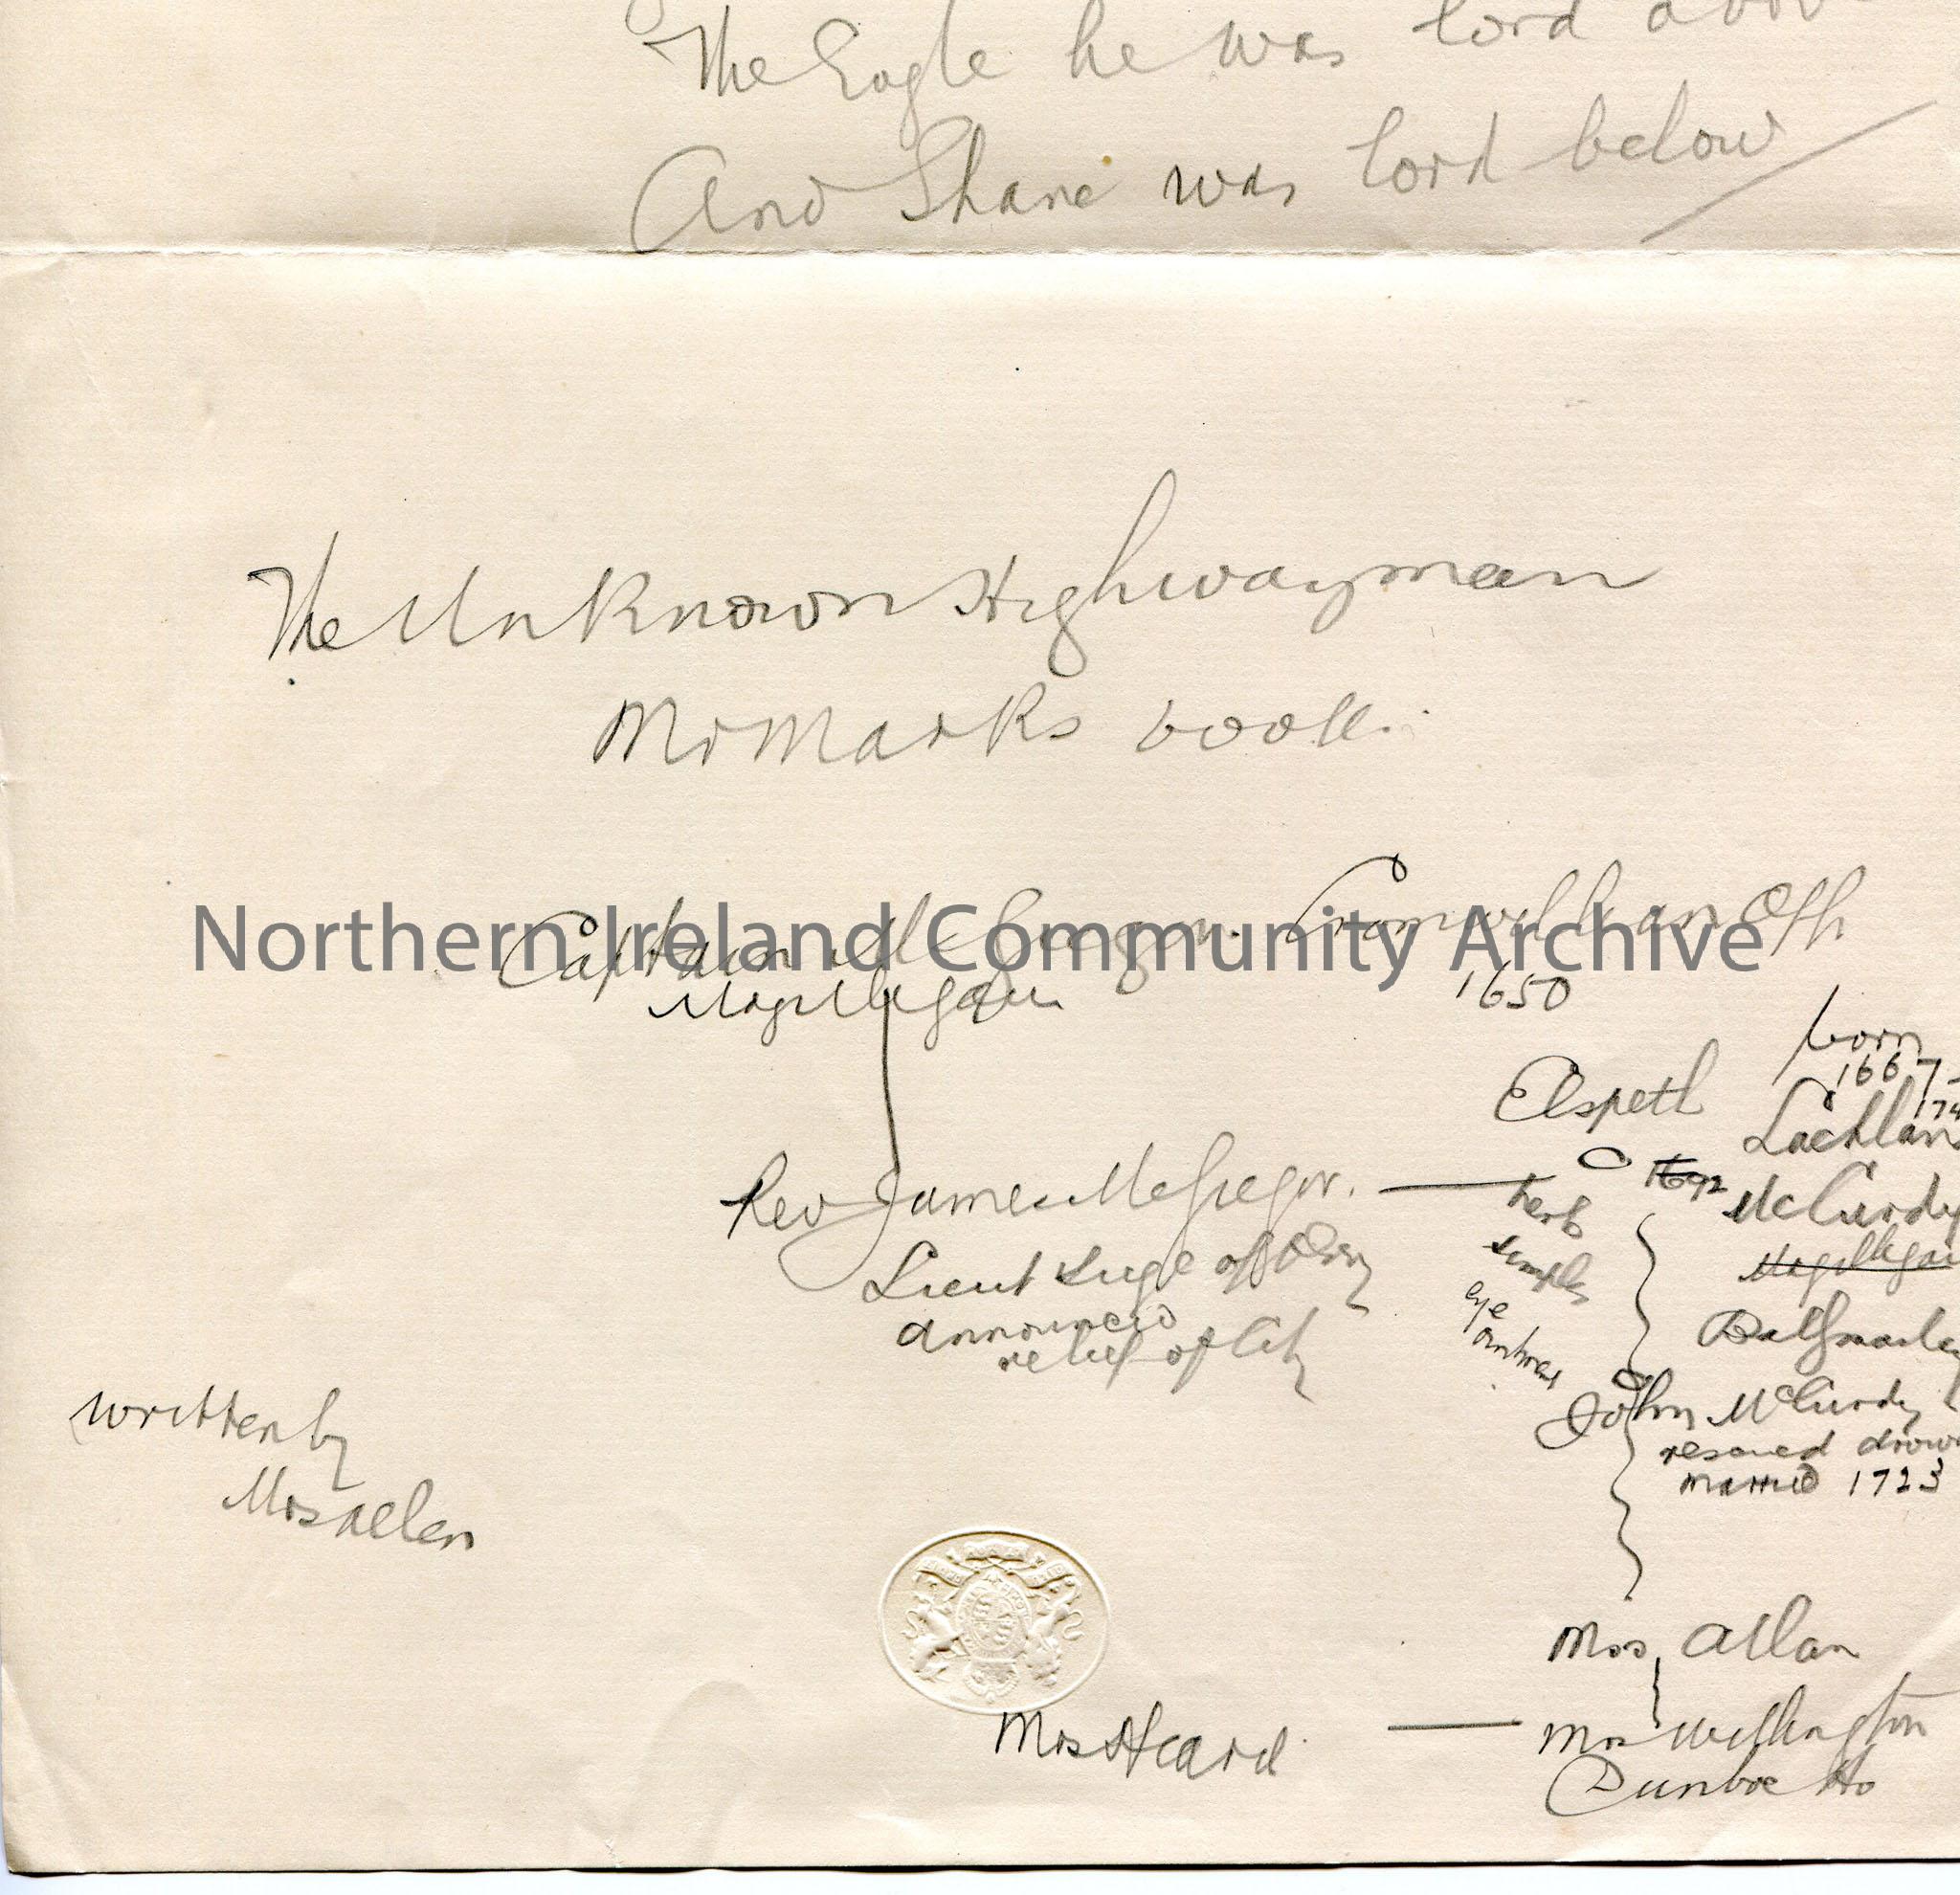 The Eagle he was lord abov
And Shane was lord below
The Unknown Highwayman
Mr Marks book.
Northern Ireland Community Archive
Captain McGregor. Cromwellian Off
Magilligan
1650
born
1667-
174
Elspeth
Lachlan
1692
McCurdy
Rev James McGregor.
herb
simples
eye
Magilligan
Lieut Siege of Derry
announced
relief of City
John McCurdy
rescued drow
married 1723
written by
Mrs Allen
Mrs Allan
Mrs Heard
Mrs Wellington
Dunboe Ho